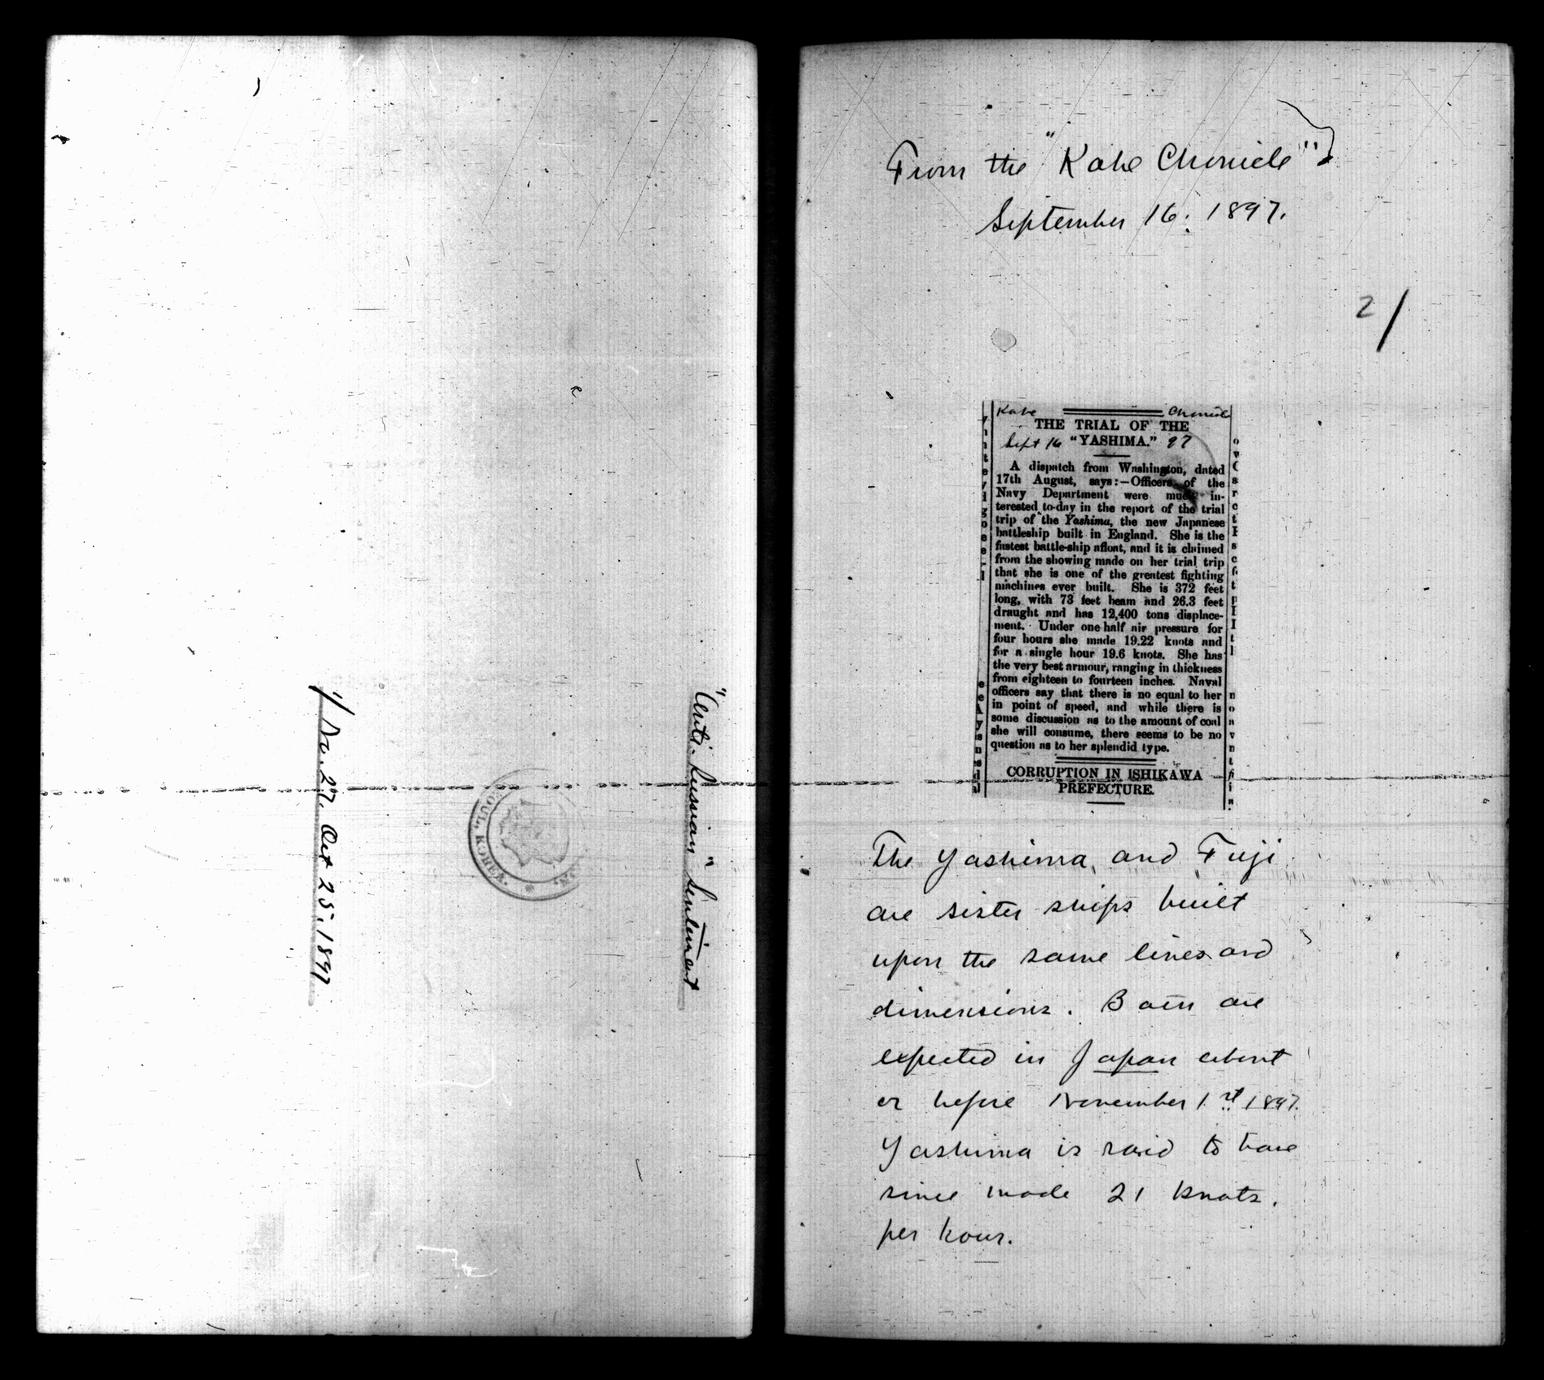 "Anti-Russian" Sentiment
1/ No. 27, Oct 25, 1897
SEOUL, KOREA.
From the "Kobe Chronicle"
September 16: 1897.
2/
Kobe Chronicle
THE TRIAL OF THE
Sept 16 "YASHIMA." 97
A dispatch from Washington, dated
17th August, says:—Officers of the
Navy Department were much in-
terested to-day in the report of the trial
trip of the Yashima, the new Japanese
battleship built in England. She is the
fastest battle-ship afloat, and it is claimed
from the showing made on her trial trip
that she is one of the greatest fighting
machines ever built. She is 372 feet
long, with 73 feet beam and 26.3 feet
draught and has 12,400 tons displace-
ment. Under one-half air pressure for
four hours she made 19.22 knots and
for a single hour 19.6 knots. She has
the very best armour, ranging in thickness
from eighteen to fourteen inches. Naval
officers say that there is no equal to her
in point of speed, and while there is
some discussion as to the amount of coal
she will consume, there seems to be no
question as to her splendid type.
CORRUPTION IN ISHIKAWA
PREFECTURE.
The Yashima, and Fuji
are sister ships built
upon the same lines and
dimensions. Both are
expected in Japan about
or before November 1st 1897.
Yashima is said to have
since made 21 knots.
per hour.